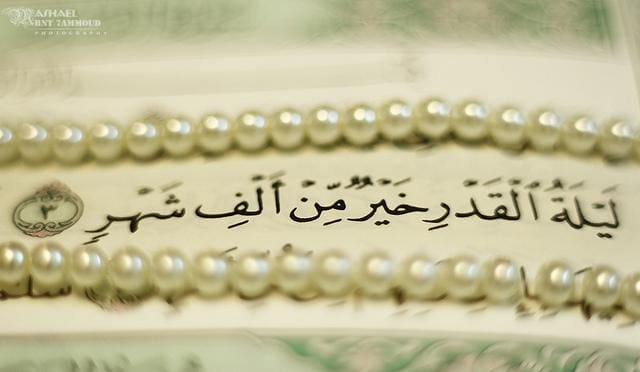 ASHAEL
BNT 7AMMOUD
PHOTOGRAPHY
لَيْلَةُ الْقَدْرِ خَيْرٌ مِّنْ أَلْفِ شَهْرٍ ٣